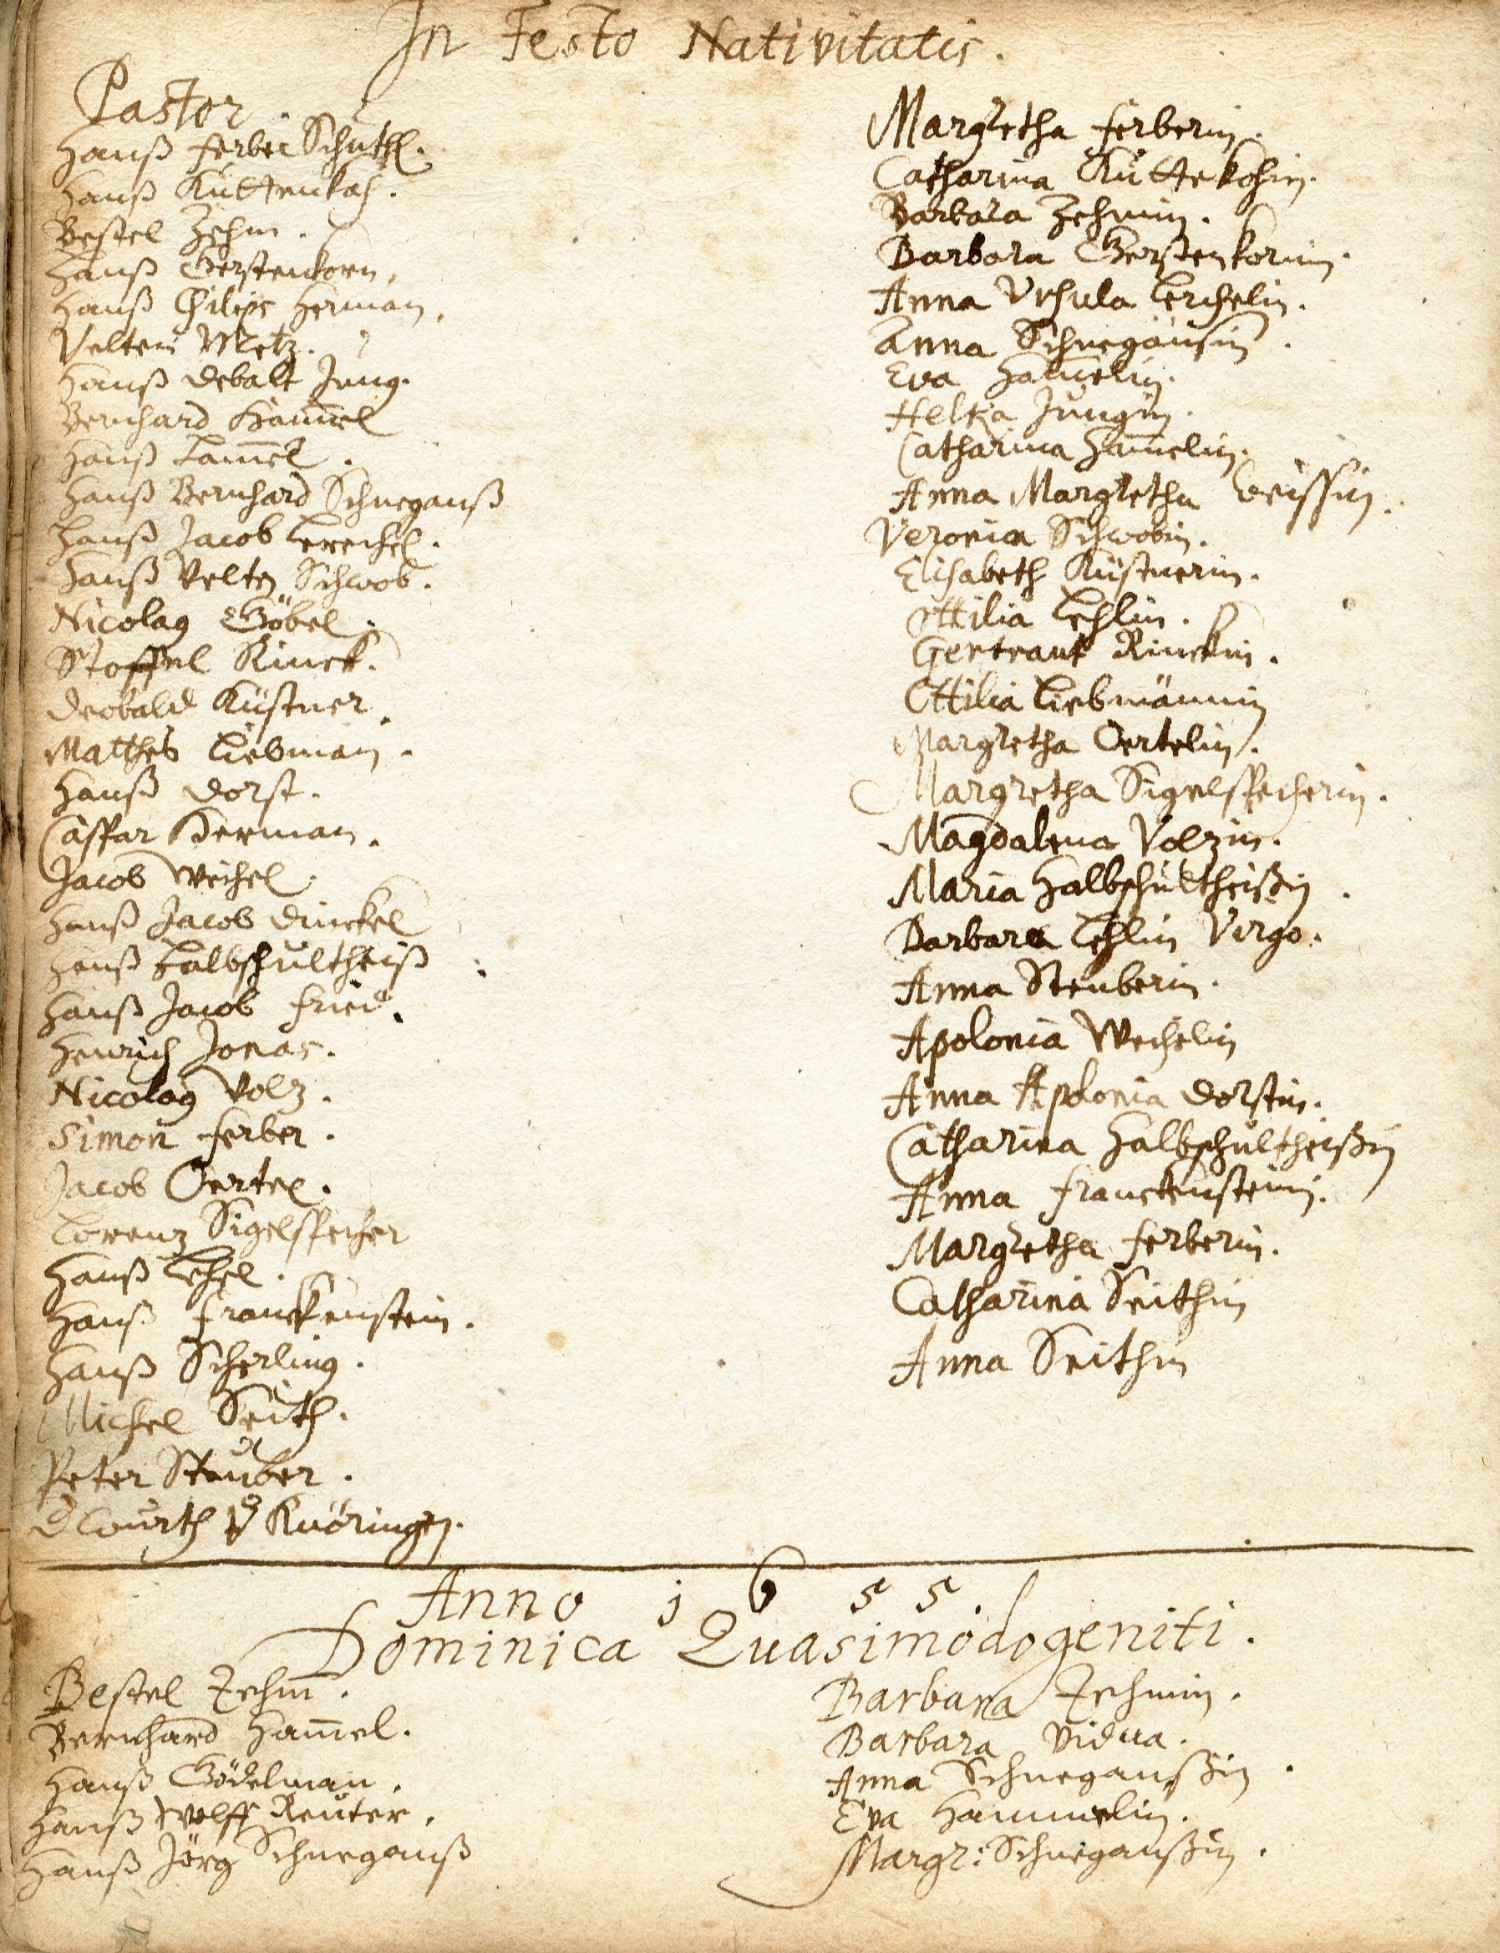 In Festo Nativitatis.
Pastor.
Hanß Ferber Schuth.
Hanß Küttenkoch.
Bestel Zehm.
Hanß Gerstenkorn.
Hanß Philips Herman.
Velten Metz.
Hanß Debalt Jung.
Bernhard Ham̄el
Hanß Lam̄el.
Hanß Bernhard Schneganß
Hanß Jacob Lerchel.
Hanß Velten Schwob.
Nicolaꝰ Göbel.
Stoffel Rinck.
Deobald Küstner.
Matthes Liebman.
Hanß Dorst.
Casspar Herman.
Jacob Wechel.
Hanß Jacob Dinckel
Hanß Halbschultheiß
Hanß Jacob Fried.
Henrich Jonas.
Nicolaꝰ Volz.
Simon Ferber.
Jacob Oertel.
Lorenz Sigelspecher
Hanß Lehl.
Hanß Franckenstein.
Hanß Scherling.
Michel Seith.
Peter Steuber.
Margretha Ferberin.
Catharina Küttekohin.
Barbara Zehmin.
Barbara Gerstenkornin.
Anna Vrsula Lerchelin.
Anna Schnegausin.
Eva Ham̄elin.
Helka Jungin.
Catharina Ham̄elin.
Anna Margretha Weissin.
Veronica Schwobin.
Elisabeth Küstnerin.
Ottilia Lehlin.
Gertraut Rinckin.
Ottilia Liebmännin
Margretha Oertelin.
Margretha Sigelspecherin.
Magdalena Volzin.
Maria Halbschultheißin.
Barbara Lehlin Virgo.
Anna Steuberin.
Apolonia Wechelin
Anna Apolonia Dorstin.
Catharina Halbschultheißin
Anna Franckensteinin.
Margretha Ferberin.
Catharina Seithin
Anna Seithin
Anno 1655.
Dominica Quasimodogeniti.
Bestel Zehm.
Bernhard Ham̄el.
Hanß Gödelman.
Hanß Wolff Reuter.
Hanß Jörg Schneganß
Barbara Zehmin.
Barbara Vidua.
Anna Schneganßin.
Eva Hammelin.
Margr: Schneganßin.